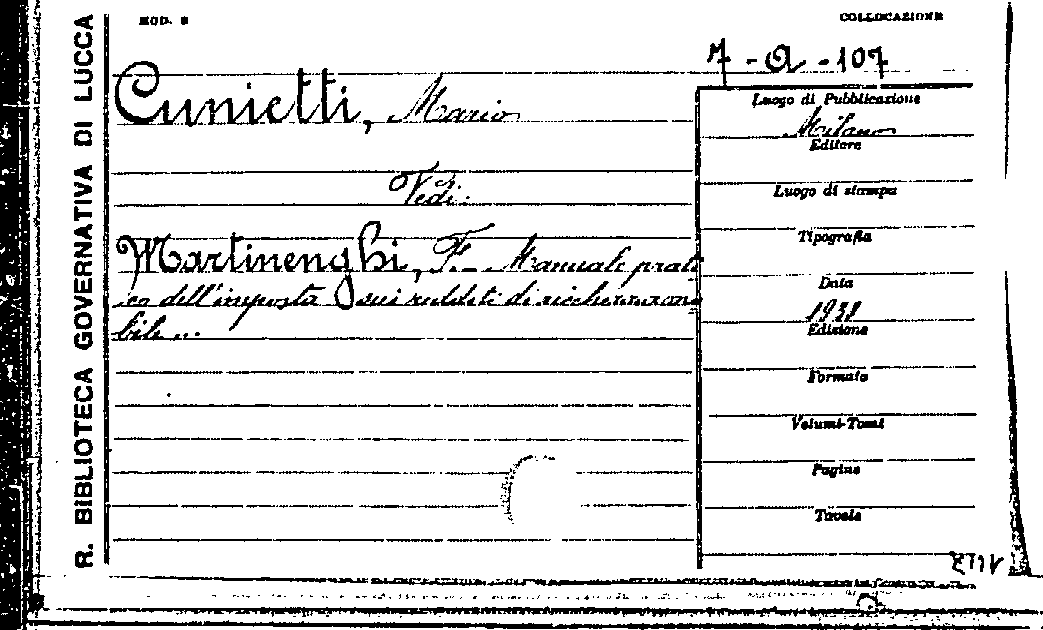 MOD. 8
COLLOCAZIONE
7-a-107
R. BIBLIOTECA GOVERNATIVA DI LUCCA
Cunietti, Mario
Vedi:
Martinenghi, F. - Manuale prat
ico dell'imposta sui redditi di ricchezza mo
bile ...
Luogo di Pubblicazione
Milano
Editore
Luogo di stampa
Tipografia
Data
1938
Edizione
Formato
Volumi-Tomi
Pagine
Tavole